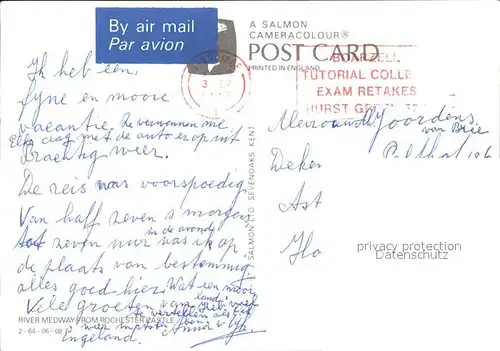 By air mail
Par avion
A SALMON
CAMERACOLOUR®
POST CARD
PRINTED IN ENGLAND
BOARZELL
TUTORIAL COLLE
EXAM RETAKES
HURST GREEN
Ik heb een
fyne en mooie
vacantie, Ze verwennen me
Elke dag met de auto er op uit
prachtig weer.
De reis was voorspoedig
Van half zeven s morgens
in de avond
tot zeven uur was ik op
de plaats van bestemming
alles goed hier. Wat een mooi
land
Vele groeten van
te vertellen als ik
weer
Engeland. Anna
Mevrouw Joordens
van Brie
Deken
Ast
SALMON LTD SEVENOAKS KENT
privacy protection
Datenschutz
RIVER MEDWAY FROM ROCHESTER CASTLE
2-64-06-08